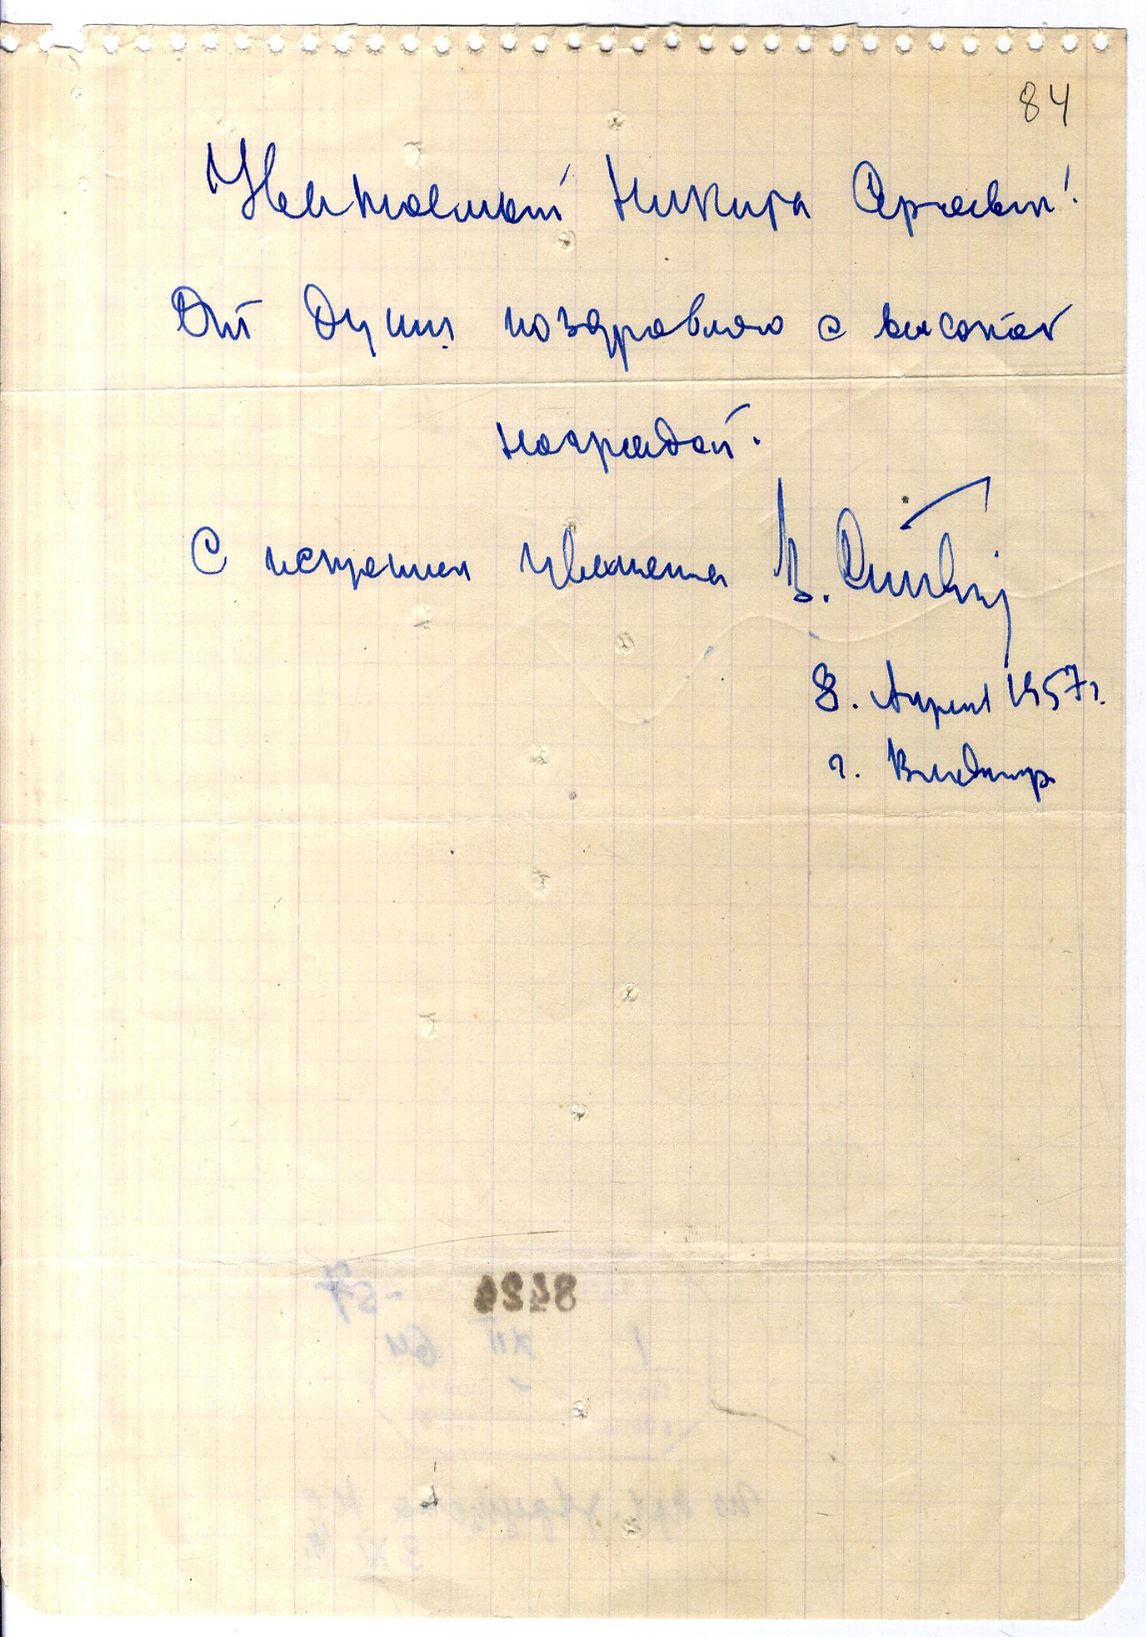 84
Уважаемый Никита Сергеевич!
От души поздравляю с высокой
наградой.
С искренним уважением В.
8. Апреля 1957г.
г. Владимир
8424